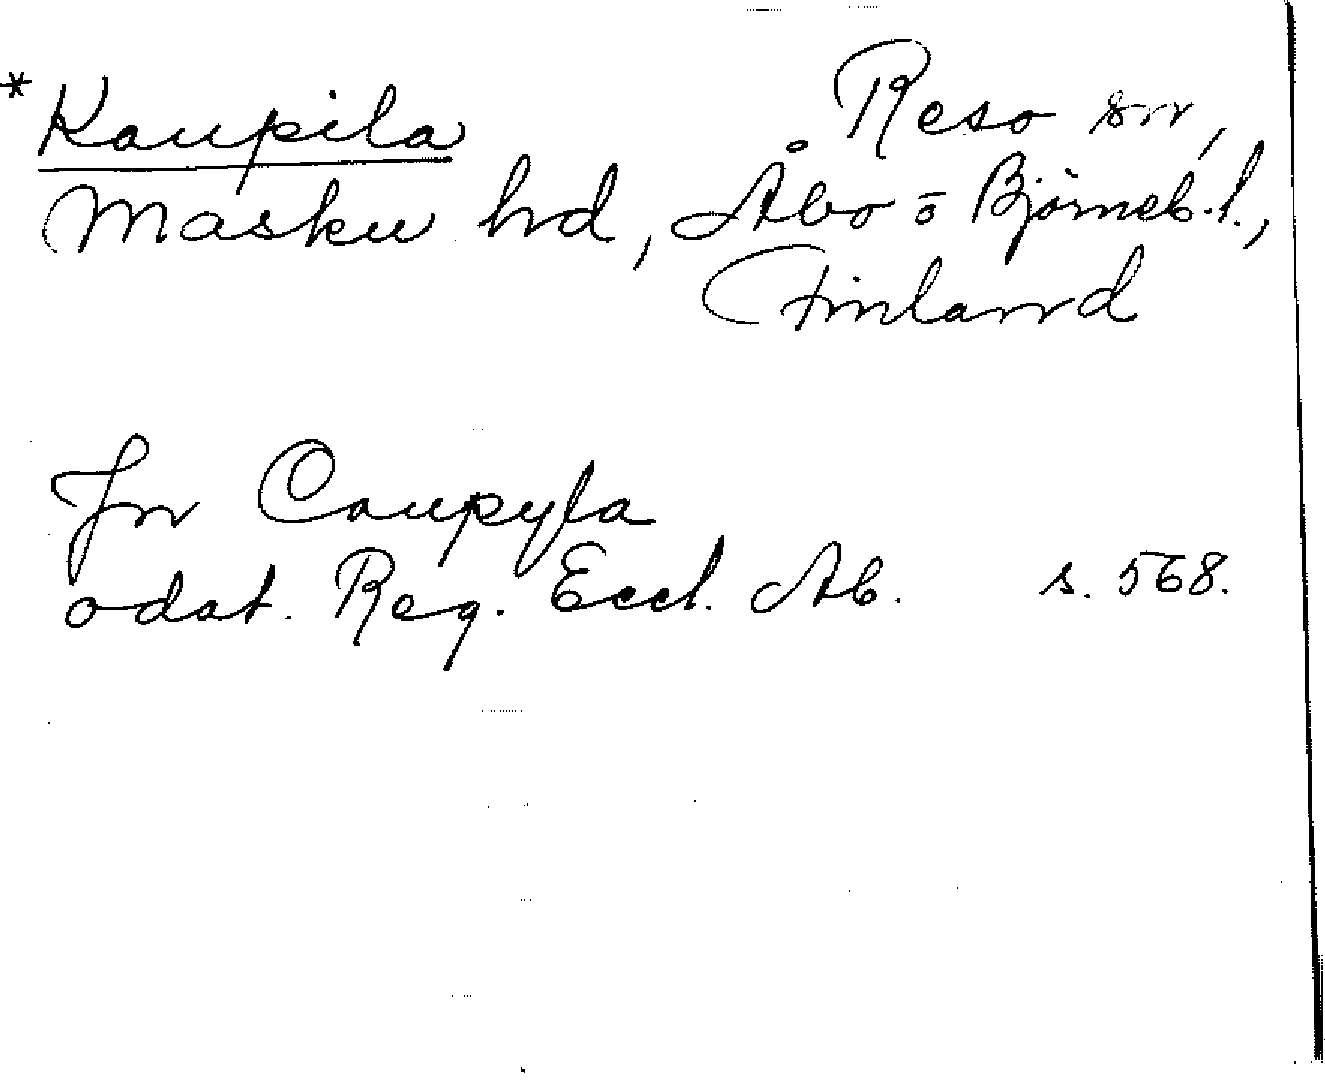 *Kaupila Reso sn,
Masku hd, Åbo o Björneb.l.,
Finland
Jn Caupyla
odat. Reg. Eccl. Ab. s. 568.